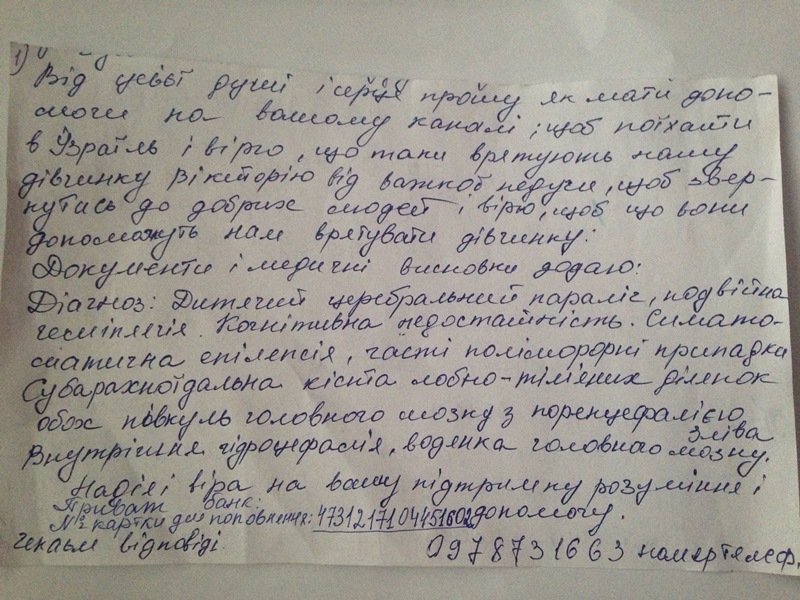 1)
Від усієї душі і серця прошу як мати допо-
могти на вашому каналі, щоб поїхати
в Ізраїль і вірю, що таки врятують нашу
дівчинку Вікторію від важкоб недуги, щоб звер-
нутись до добрих людей і вірю, щоб що вони
допоможуть нам врятувати дівчинку:
Документи і медичні висновки додаю:
Діагноз: Дитячий церебральний параліч, подвійна
геміплегія. Когнітивна недостатність. Симпто-
матична епілепсія, часті поліморфні припадки
Субарахноїдальна кіста лобно-тім'яних ділянок
обох півкуль головного мозку з поренцефалією зліва
Внутрішня гідроцефалія, водянка головного мозку.
Надія і віра на вашу підтримку розуміння і
допомогу.
Приват банк:
№ картки для поповнення: 4731217104451602
чекаєм відповіді.
0978731663 номер телеф.